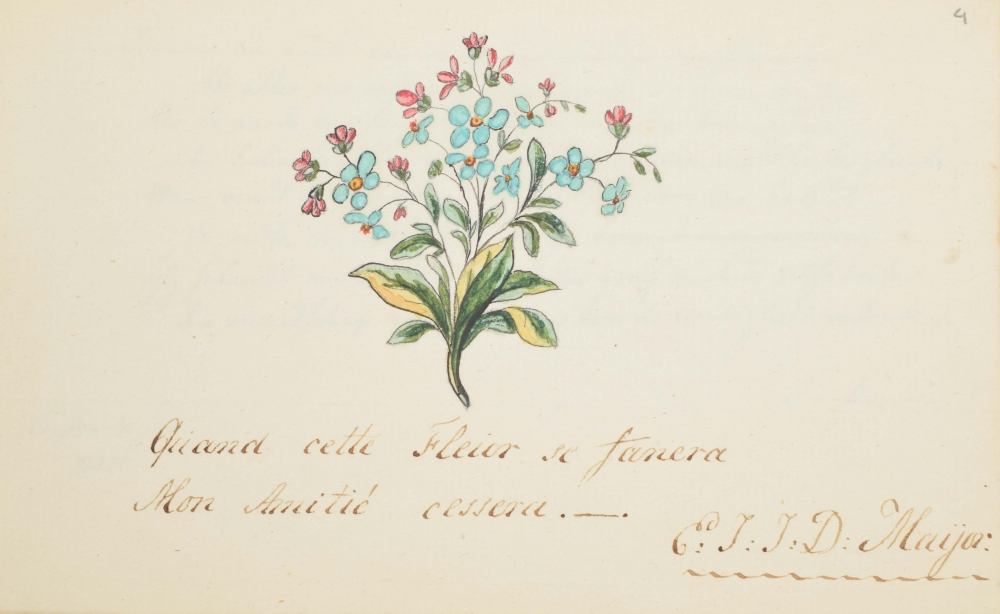 4
Quand cette Fleur se fanera
Mon Amitié cessera. —.
E: J: J: D: Maijor: